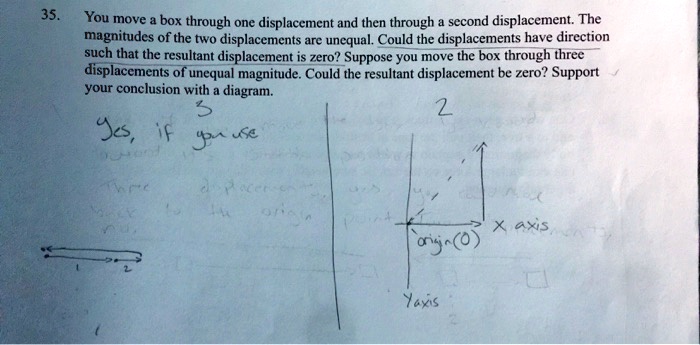 35. You move a box through one displacement and then through a second displacement. The
magnitudes of the two displacements are unequal. Could the displacements have direction
such that the resultant displacement is zero? Suppose you move the box through three
displacements of unequal magnitude. Could the resultant displacement be zero? Support
your conclusion with a diagram.
3
Yes, if you use
1 2
2
X axis
origin (0)
Yaxis